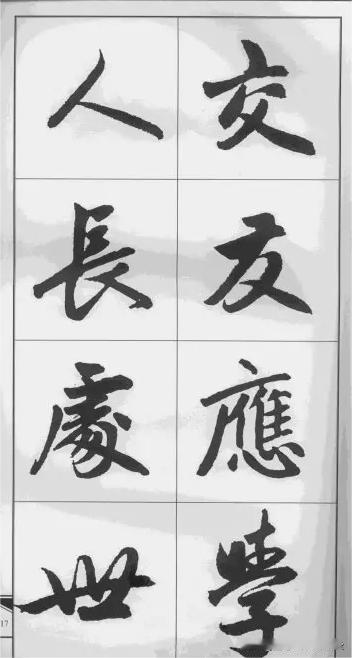 交友應學
人長處世
17